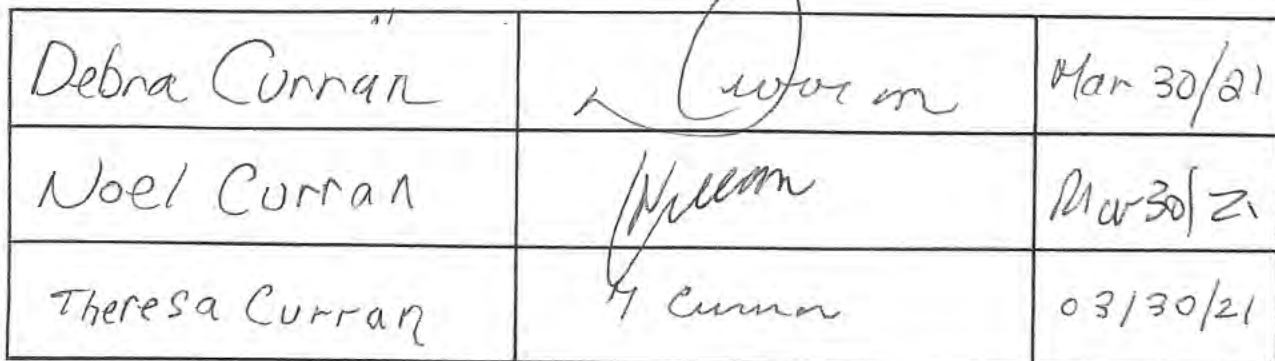 Debra Curran Mar 30/21
Noel Curran Mar 30/21
Theresa Curran T Curran 03/30/21